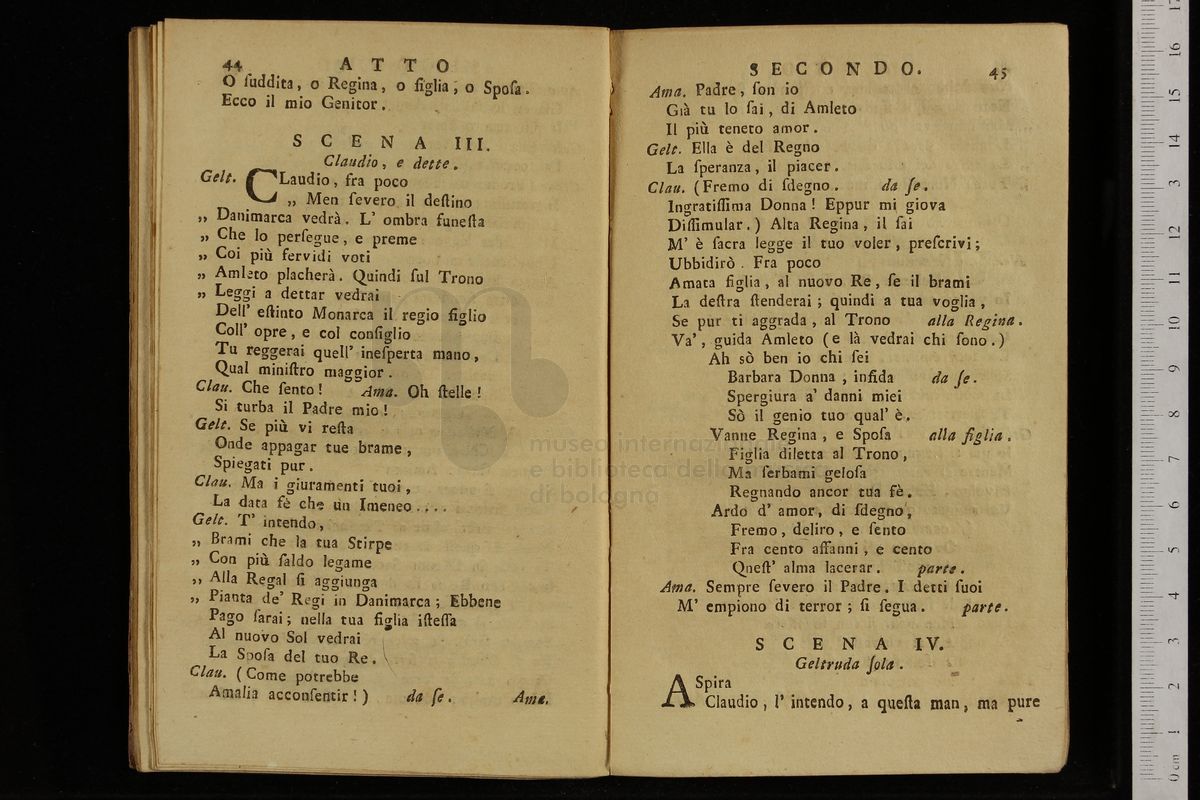 44 A T T O
O ſuddita, o Regina, o figlia, o Spoſa.
Ecco il mio Genitor.
S C E N A III.
Claudio, e dette.
Gelt. CLaudio, fra poco
„ Men ſevero il deſtino
„ Danimarca vedrà. L' ombra funeſta
„ Che lo perſegue, e preme
„ Coi più fervidi voti
„ Amleto placherà. Quindi ſul Trono
„ Leggi a dettar vedrai
Dell' eſtinto Monarca il regio figlio
Coll' opre, e col conſiglio
Tu reggerai quell' ineſperta mano,
Qual miniſtro maggior.
Clau. Che ſento! Ama. Oh ſtelle!
Si turba il Padre mio!
Gelt. Se più vi reſta
Onde appagar tue brame,
Spiegati pur.
Clau. Ma i giuramenti tuoi,
La data fè che un Imeneo ....
Gelt. T' intendo,
„ Brami che la tua Stirpe
„ Con più ſaldo legame
„ Alla Regal ſi aggiunga
„ Pianta de' Regi in Danimarca; Ebbene
Pago ſarai; nella tua figlia iſteſſa
Al nuovo Sol vedrai
La Spoſa del tuo Re.
Clau. (Come potrebbe
Amalia acconſentir!) da ſe. Ama.
SECONDO. 45
Ama. Padre, ſon io
Già tu lo ſai, di Amleto
Il più tenero amor.
Gelt. Ella è del Regno
La ſperanza, il piacer.
Clau. (Fremo di ſdegno. da ſe.
Ingratiſſima Donna! Eppur mi giova
Diſſimular.) Alta Regina, il ſai
M' è ſacra legge il tuo voler, preſcrivi;
Ubbidirò. Fra poco
Amata figlia, al nuovo Re, ſe il brami
La deſtra ſtenderai; quindi a tua voglia,
Se pur ti aggrada, al Trono alla Regina.
Va', guida Amleto (e là vedrai chi ſono.)
Ah sò ben io chi ſei
Barbara Donna, infida da ſe.
Spergiura a' danni miei
Sò il genio tuo qual' è.
Vanne Regina, e Spoſa alla figlia.
Figlia diletta al Trono,
Ma ſerbami geloſa
Regnando ancor tua fè.
Ardo d' amor, di ſdegno,
Fremo, deliro, e ſento
Fra cento affanni, e cento
Queſt' alma lacerar. parte.
Ama. Sempre ſevero il Padre. I detti ſuoi
M' empiono di terror; ſi ſegua. parte.
S C E N A IV.
Geltruda ſola.
ASpira
Claudio, l' intendo, a queſta man, ma pure
museo internazionale
e biblioteca della musica
di bologna
0 cm 1 2 3 4 5 6 7 8 9 10 11 12 13 14 15 16 17